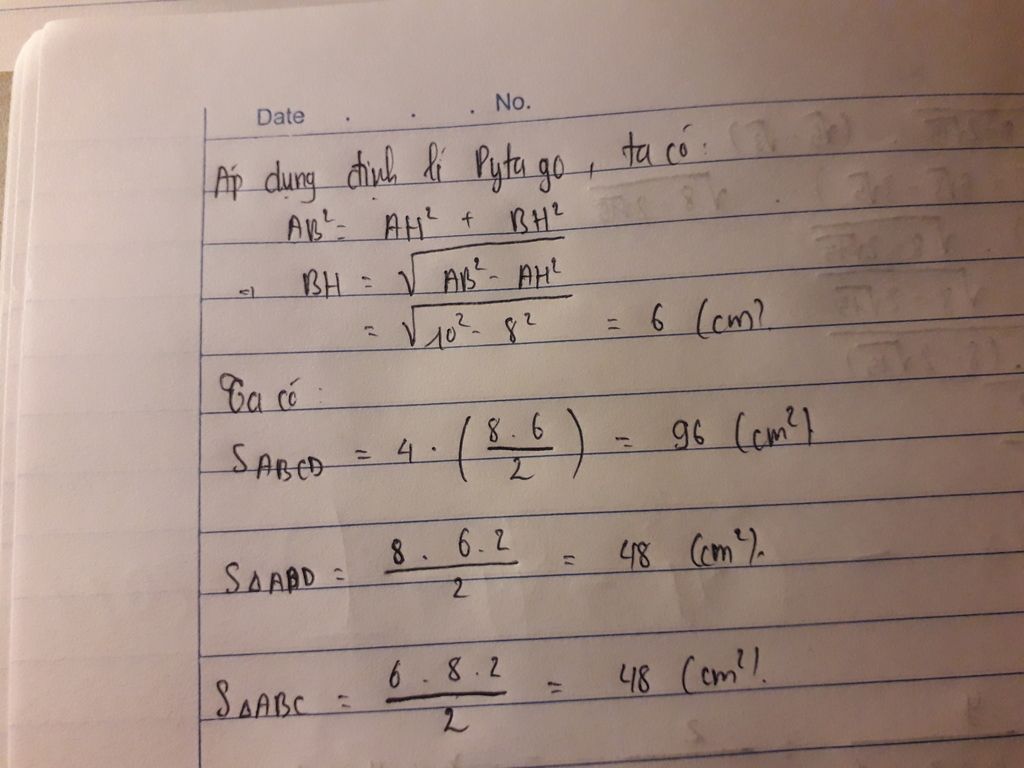 Date . . . No.
Áp dụng định lí Pytago, ta có:
AB² = AH² + BH²
⇒ BH = √(AB² - AH²)
= √(10² - 8²) = 6 (cm)
Ta có:
S ABCD = 4 . (8.6/2) = 96 (cm²)
S△ABD = 8 . 6.2/2 = 48 (cm²).
S△ABC = 6 . 8.2/2 = 48 (cm²).